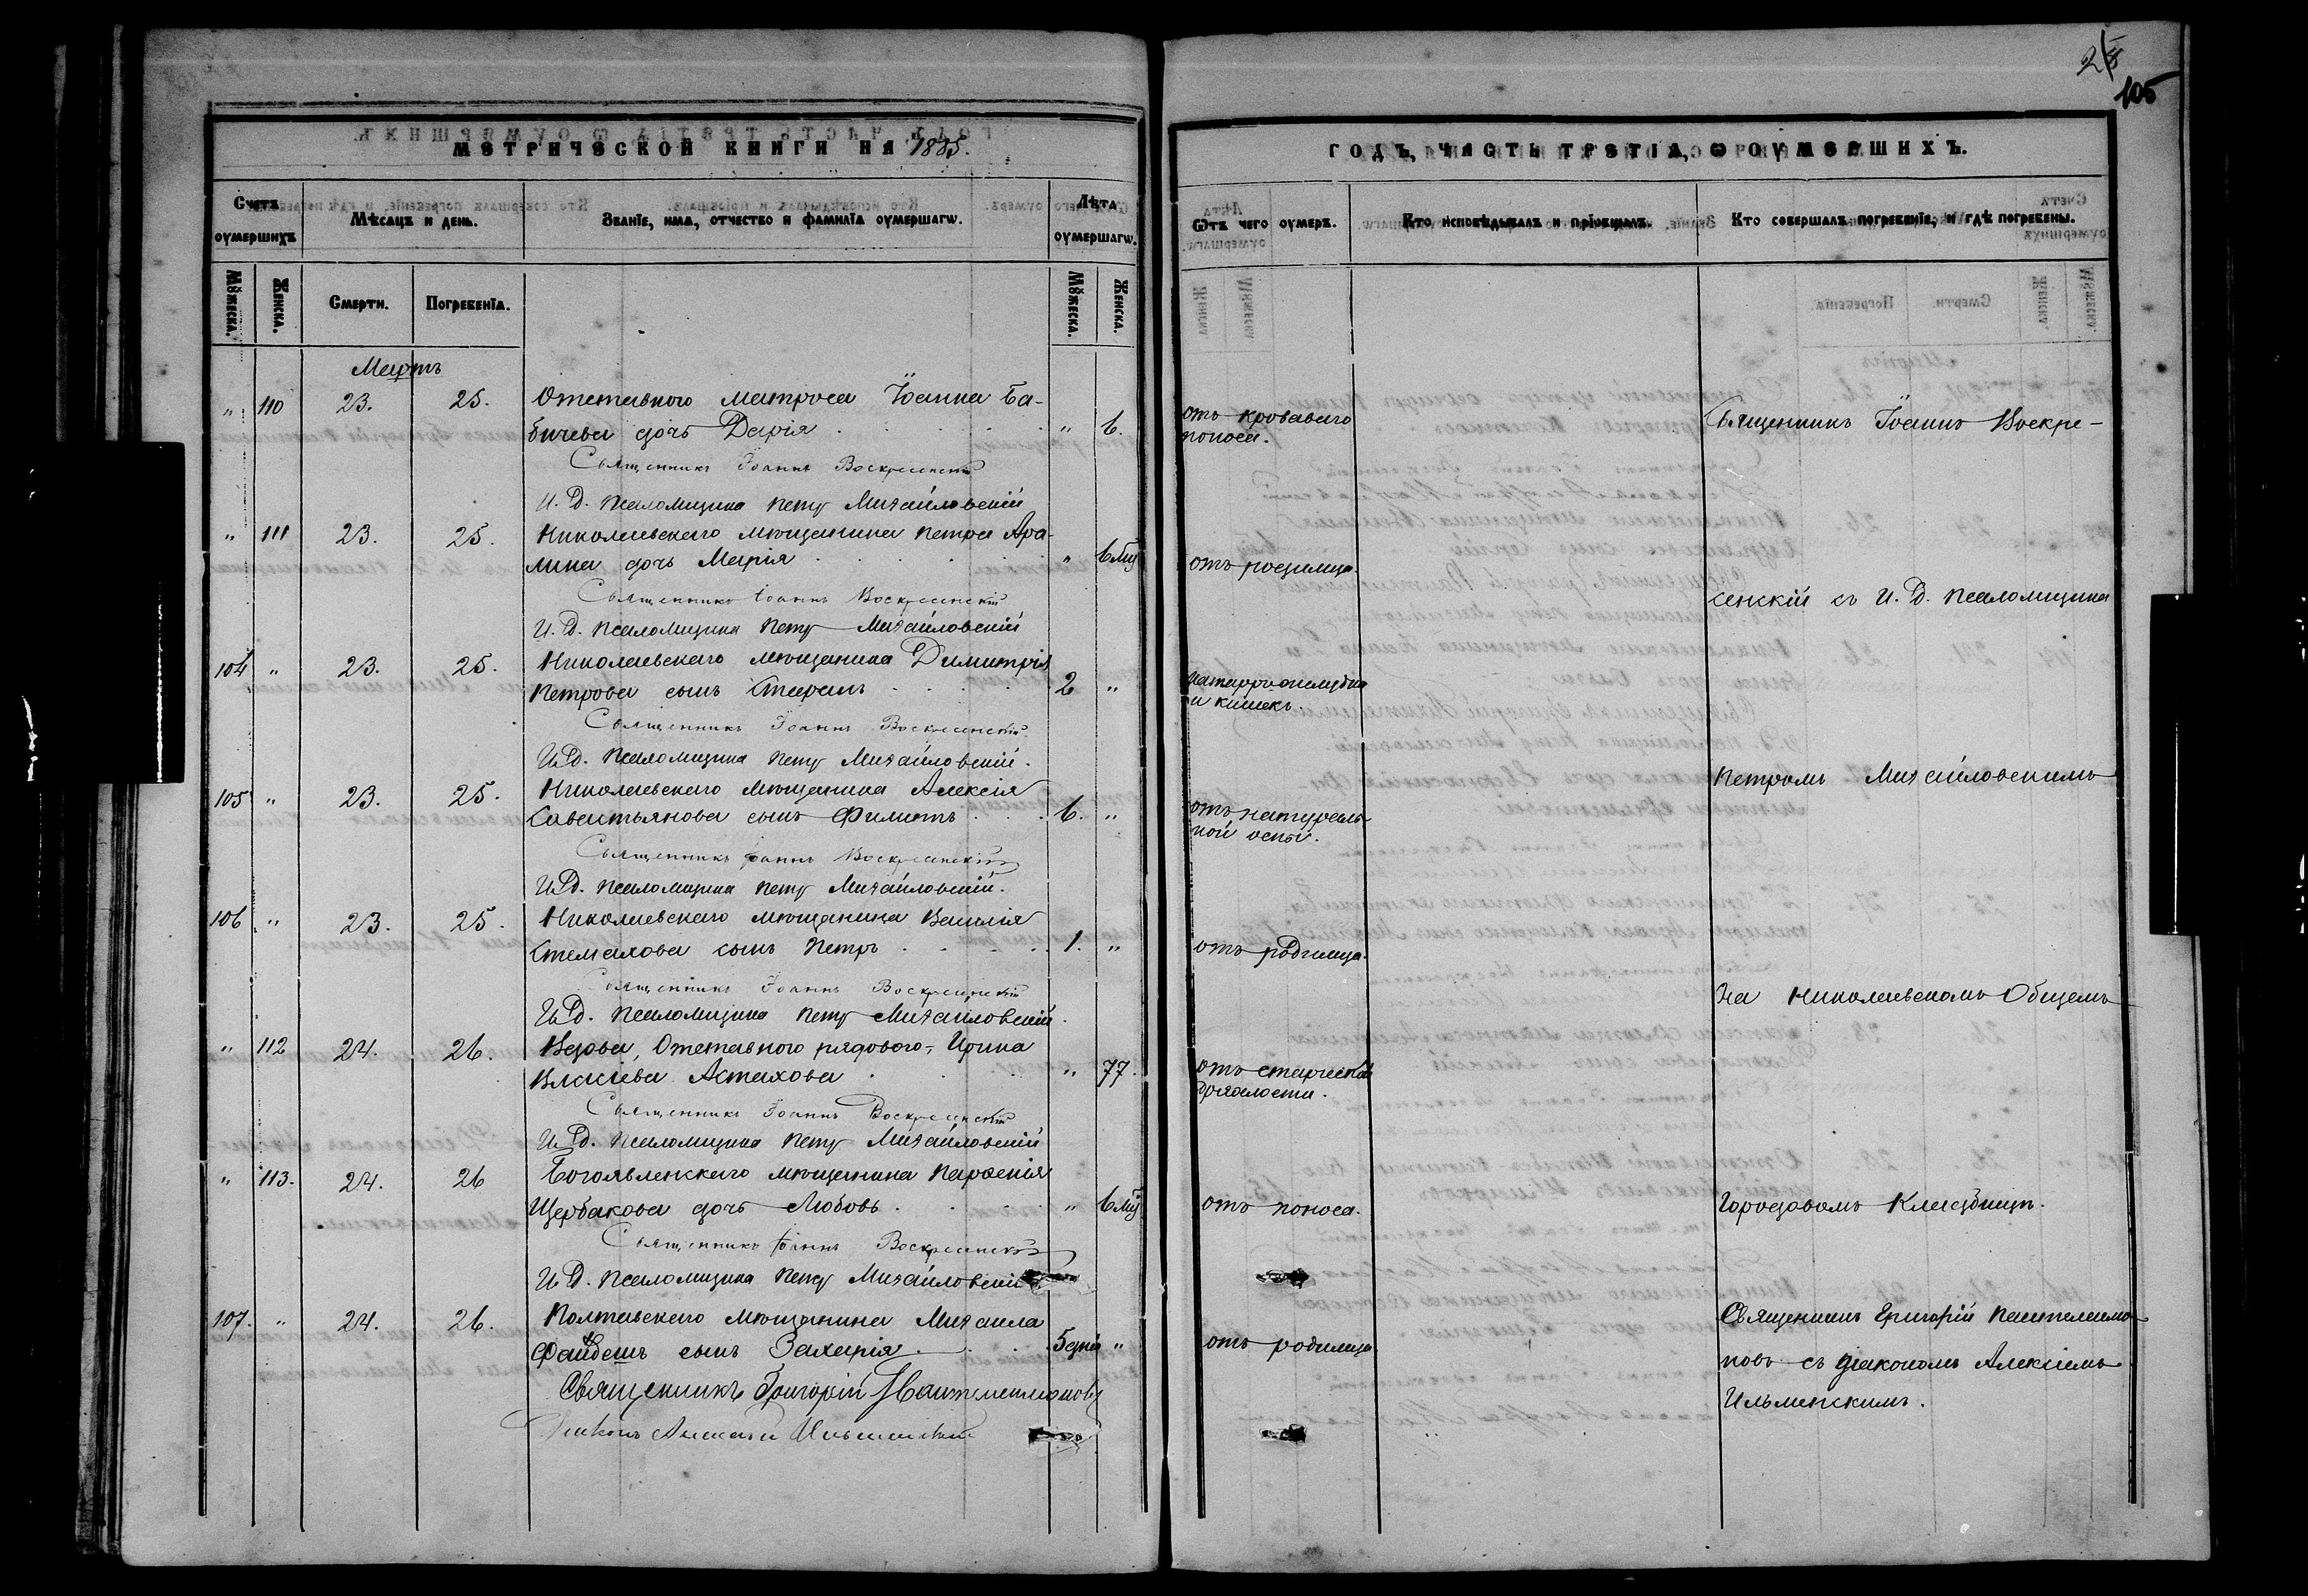 105
МЕТРИЧЕСКОЙ КНИГИ НА 1885.
ГОДЪ, ЧАСТЬ ТРЕТІѦ, Ѡ ОУМЕРШИХЪ.
Счетъ оумершихъ
Мѣсяцъ и день.
Званїе, имѧ, отчество и фамилїѧ оумершагѡ.
Лѣта оумершагѡ.
Ѿтъ чего оумеръ.
Кто исповѣдывалъ и прїобщалъ.
Кто совершалъ погребенїе, и гдѣ погребены.
Мꙋжеска.
Женска.
Смерти.
Погребенїѧ.
Мꙋжеска.
Женска.
Мартъ
" 110 23. 25. Отставного матроса Іоанна Ба-
бичева дочь Дарія " 6. отъ кроваваго поноса. Священникъ Іоаннъ Воскре-
Священникъ Іоаннъ Воскресенскій
И. Д. Псаломщика Петръ Михайловскій
" 111 23. 25. Николаевскаго мѣщанина Петра Ара-
лина дочь Марія " 6 мц отъ родимца.
Священникъ Іоаннъ Воскресенскій
сенскій съ И. Д. Псаломщика
И. Д. Псаломщика Петръ Михайловскій
104 " 23. 25. Николаевскаго мѣщанина Димитрія
Петрова сынъ Стефанъ 2 " и кишекъ.
Священникъ Іоаннъ Воскресенскій
И. Д. Псаломщика Петръ Михайловскій.
Петромъ Михайловскимъ
105 " 23. 25. Николаевскаго мѣщанина Алексія
Савастьянова сынъ Филиппъ 6. " отъ натураль-
ной оспы.
Священникъ Іоаннъ Воскресенскій
И. Д. Псаломщика Петръ Михайловскій.
106 " 23. 25. Николаевскаго мѣщанина Василія
Стемахова сынъ Петръ 1. " отъ родимца.
Священникъ Іоаннъ Воскресенскій
на Николаевскомъ Общемъ
И. Д. Псаломщика Петръ Михайловскій.
" 112 24. 26. Вдова, Отставного рядового, Ирина
Власіева Астахова " 77. отъ старческой
дряхлости.
Священникъ Іоаннъ Воскресенскій
И. Д. Псаломщика Петръ Михайловскій
" 113. 24. 26 Богоявленскаго мѣщанина Парѳенія
Щербакова дочь Любовь " 6 мц отъ поноса. Городовомъ Кладбищѣ.
Священникъ Іоаннъ Воскресенскій
И. Д. Псаломщика Петръ Михайловскій
107. " 24. 26. Полтавскаго мѣщанина Михаила
Священникъ Григорій Пантелеимо-
сынъ Захарія 5 дній " отъ родимца
новъ съ діакономъ Алексіемъ
Священникъ Григорій Пантелеимоновъ
Ильменскимъ.
Діаконъ Алексій Ильменскій